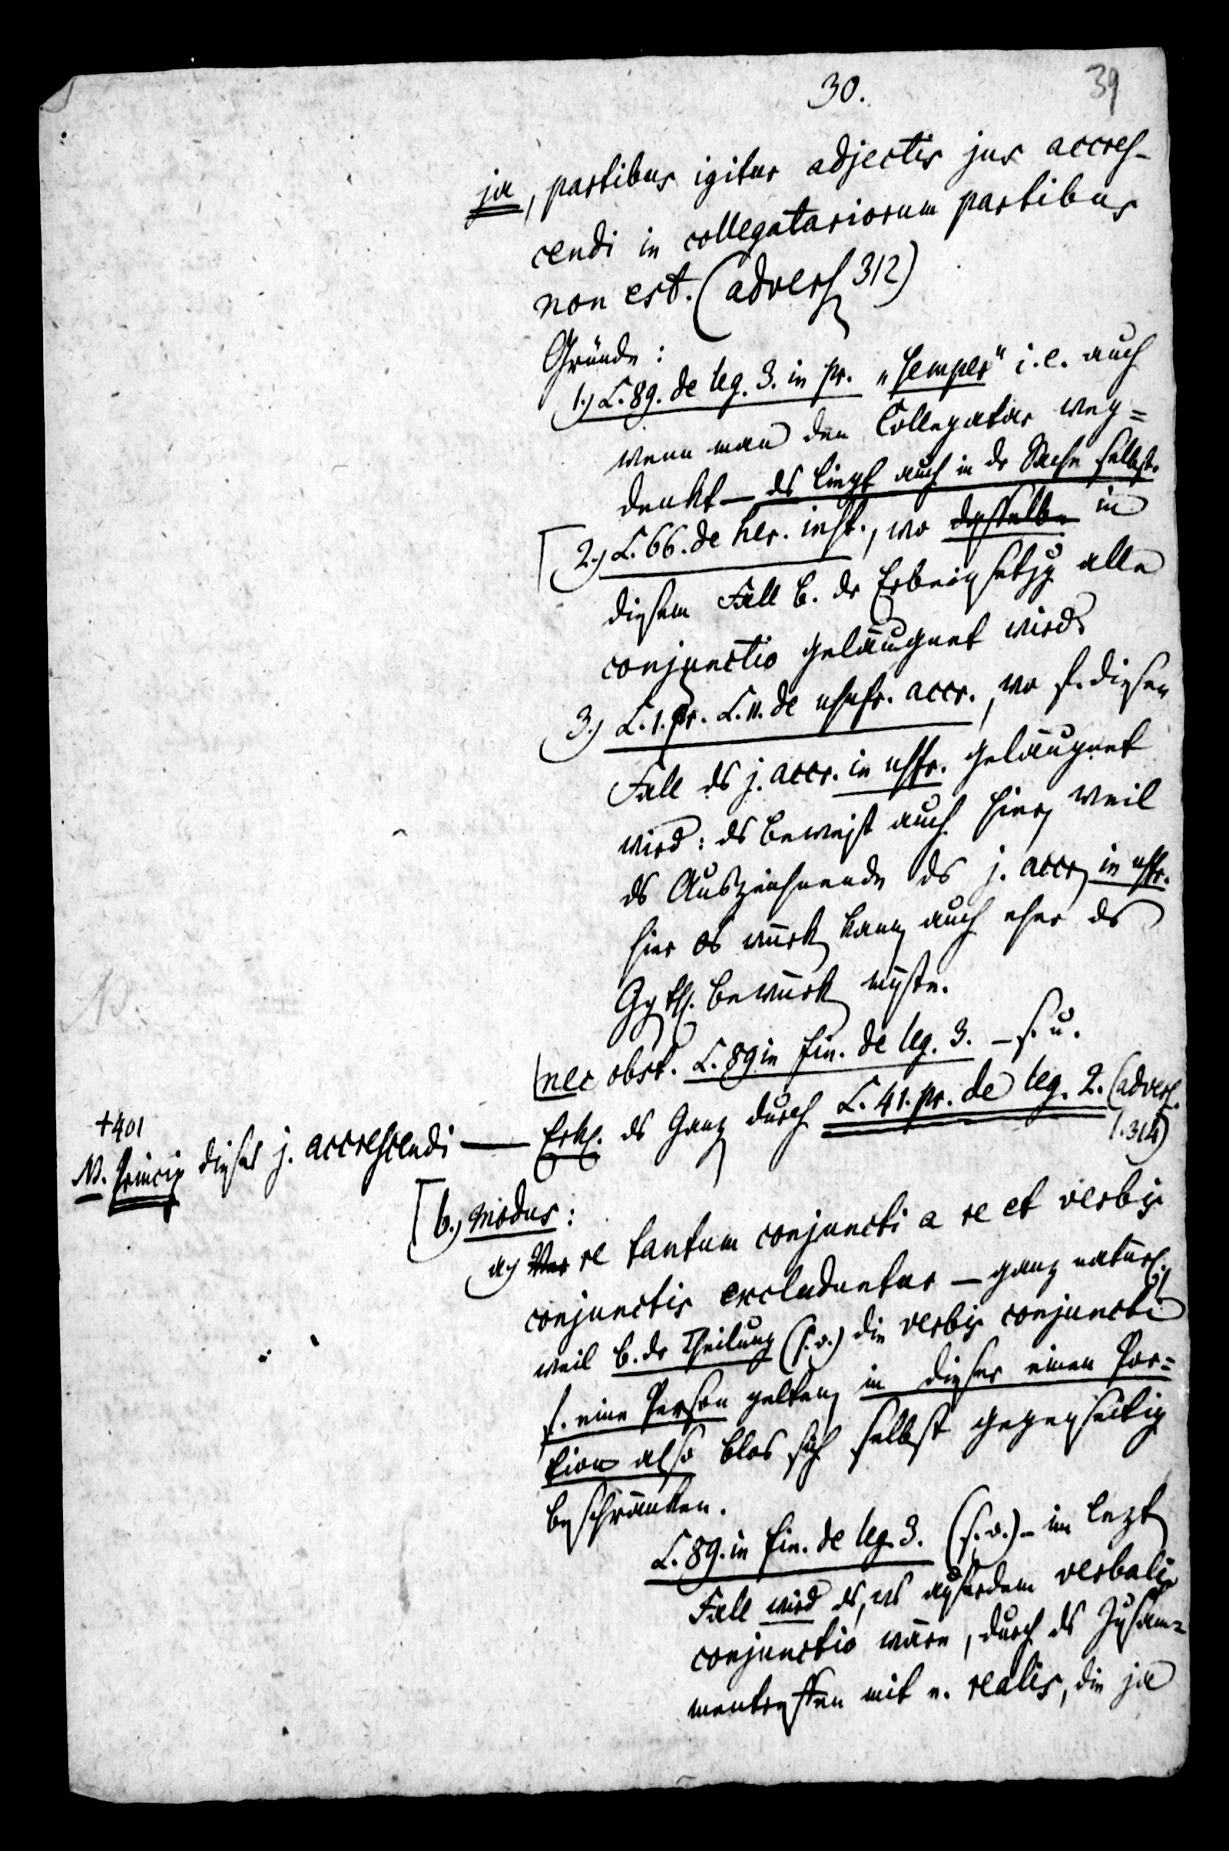 30.
39
ja, partibus igitur adjectis jus accres-
cendi in collegatariorum partibus
non est. (advers 312)
Gründe:
1.) L. 89. de leg. 3. in pr. „semper“ i. e. auch
wenn man den Collegatar weg=
denkt — ds liegt auch in dr Sache selbst.
2.) L. 66. de her. inst., wo dasselbe in
diesem Fall b. dr Erbeinsetzg alle
conjunctio geläugnet wird.
3.) L. 1. pr. L. 11. de usufr. accr., wo f. diesen
Fall ds j. accr. in usfr. geläugnet
wird: ds beweist auch hier, weil
ds Auszeichnende ds j. accr. in usfr.
hier nicht kann, auch eher ds
Ggthl. bewürk müste.
nec obst. L. 89 in fin. de leg. 3. – s. u.
Erkl. ds Ganz durch L. 41. pr. de leg. 2. (advers.
314)
+401
N. Princip dieses j. accrescendi —
b.) Modus:
a) re tantum conjuncti a re et verbis
conjunctis excluduntur — ganz natürl.,
weil b. dr Theilung (s. o.) die verbis conjuncti
f. eine Person gelten, in dieser einen Por=
tion also blos sich selbst gegenseitig
beschränken.
L. 89. in fin. de leg. 3. (s. o.) – im lezt
Fall wird ds, ws ausserdem verbalis
conjunctio wäre, durch ds Zusam=
mentreffen mit e. realis, die ja